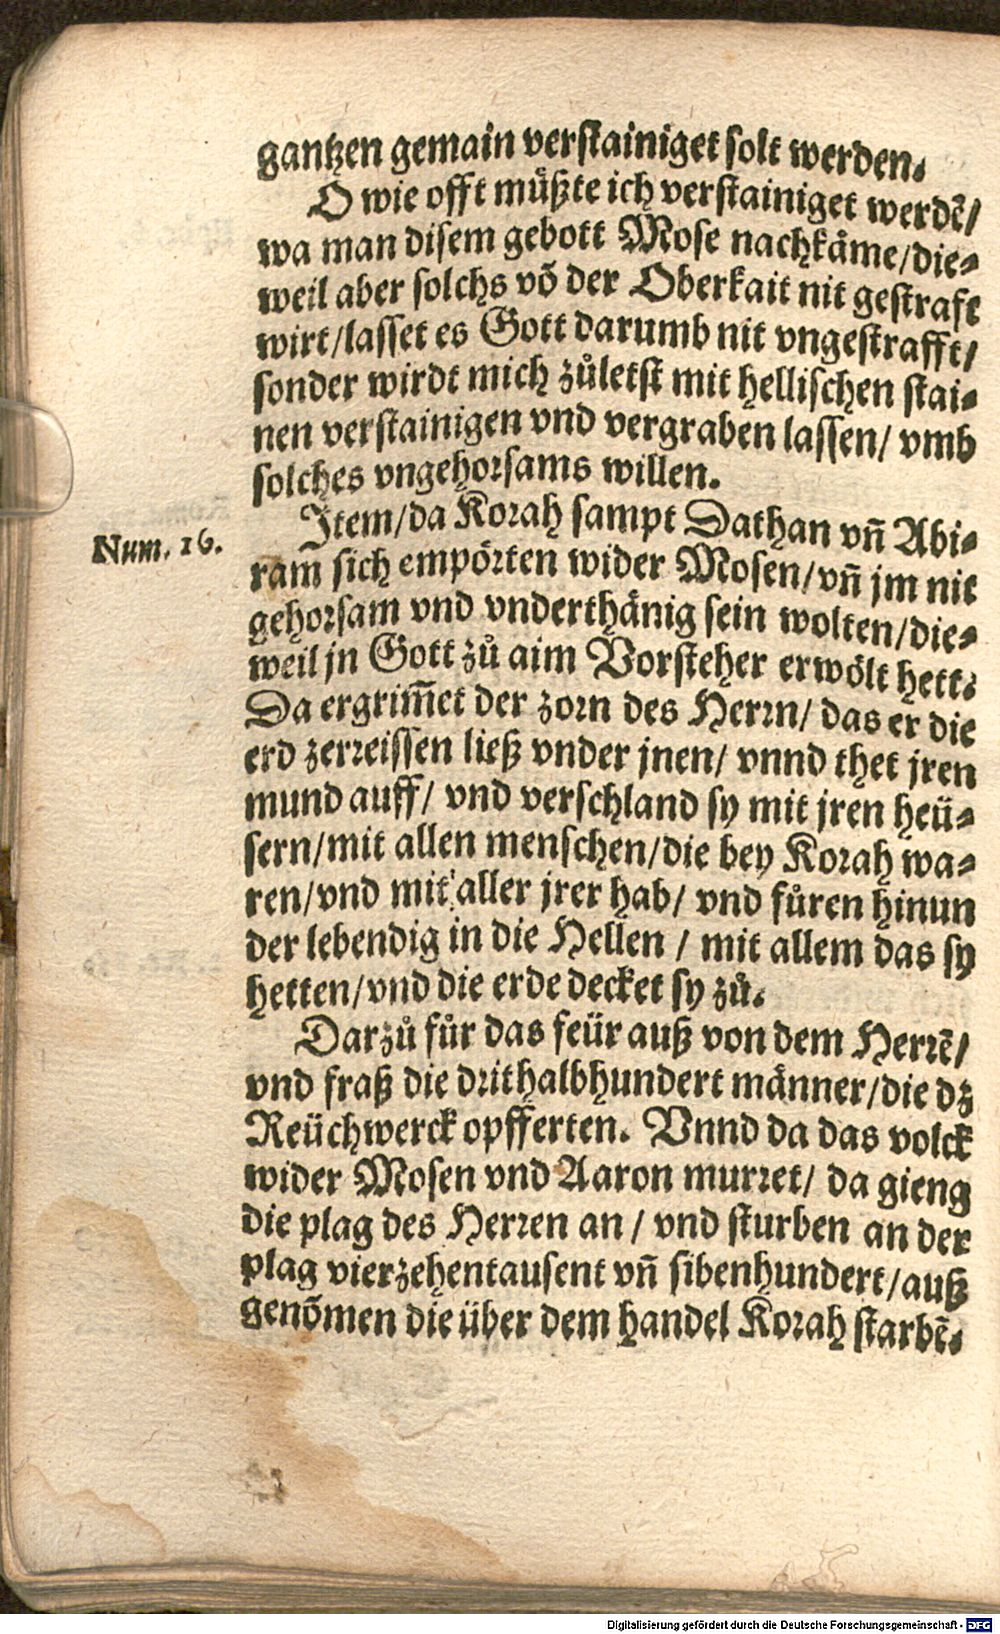 gantzen gemain verstainiget solt werden.
O wie offt müßte ich verstainiget werdē/
wa man disem gebott Mose nachkäme/die⸗
weil aber solchs vō der Oberkait nit gestraft
wirt/lasset es Gott darumb nit vngestrafft/
sonder wirdt mich zůletst mit hellischen stai⸗
nen verstainigen vnd vergraben lassen/ vmb
solches vngehorsams willen.
Num. 16.
Item/da Korah sampt Dathan vñ Abi⸗
ram sich empörten wider Mosen/vñ jm nit
gehorsam vnd vnderthänig sein wolten/die⸗
weil jn Gott zů aim Vorsteher erwölt hett.
Da ergrim̄et der zorn des Herrn/ das er die
erd zerreissen ließ vnder jnen/ vnnd thet jren
mund auff/ vnd verschland sy mit jren heü⸗
sern/mit allen menschen/die bey Korah wa⸗
ren/vnd mit aller jrer hab/ vnd fůren hinun
der lebendig in die Hellen / mit allem das sy
hetten/vnd die erde decket sy zů.
Darzů fůr das feür auß von dem Herrē/
vnd fraß die drithalbhundert männer/die dz
Reüchwerck opfferten. Vnnd da das volck
wider Mosen vnd Aaron murret/ da gieng
die plag des Herren an / vnd sturben an der
plag vierzehentausent vñ sibenhundert/auß
genōmen die über dem handel Korah starbē.
Digitalisierung gefördert durch die Deutsche Forschungsgemeinschaft - DFG